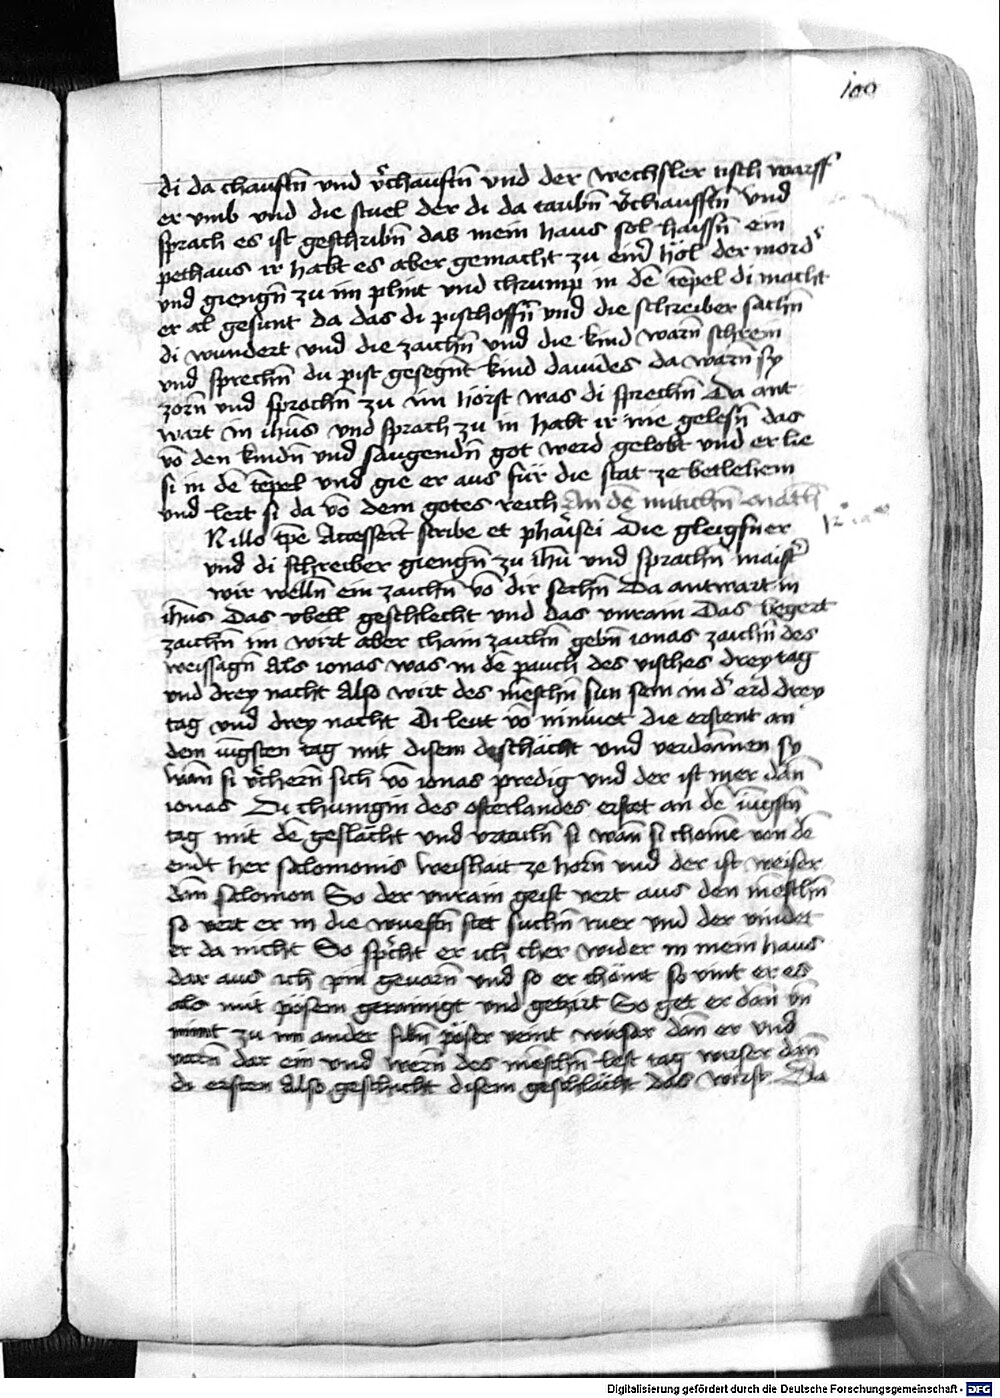 100
di da chauftn̄ vnd v̓chauftn̄ vnd der wechsler tisch warff
er vmb vnd die stuel der di da taubn̄ v̓chaufftn̄ vnd
sprach es ist geschribn̄ das mein haus sol haissn̄ ein
pethaus ir habt es aber gemacht zu ein̄ höl der mord̓
vnd giengn̄ zu im plint vnd chrump in dē tēpel di macht
er al gesunt da das di pischoffn̄ vnd die schreiber sachn̄
di wundert vnd die zaichn̄ vnd die kind warn̄ schrein
vnd sprechn̄ du pist gesegnt kind dauides da warn̄ sy
zorn̄ vnd sprachn̄ zu im hörst was di sprechn̄ Da ant
wart in ih̄us vnd sprach zu in habt ir nie gelesn̄ das
vō den kindn̄ vnd saugendn̄ got werd gelobt vnd er lie
si in dē tēpel vnd gie er aus für die stat ze betlehem
vnd lert si da vō dem gotes reich An dē mitichn̄ math̄
N illo tp̄e Accesserūt scribe et pharisei Die gleisner
vnd di schreiber giengn̄ zu ih̄u vnd sprachn̄ maist̓
wir welln̄ ein zaichn̄ vō dir sechn̄ Da antwart in
ih̄us Das vbell geschlecht vnd das vnrain Das begert
zaichn̄ im wirt aber chain zaichn̄ gebn̄ ionas zaichn̄ des
weissagn̄ Als ionas was in dē pauch des visches drey tag
vnd drey nacht Also wirt des mēschn̄ sun sein in d̓ erd drey
tag vnd drey nacht Di leut vō niniuet die erstent an
dem iūgsten tag mit disem geschlächt vnd verdamen sy
wan̄ si v̓chern̄ sich vō ionas predig vnd der ist mer dan̄
ionas Di chunigin des osterlandes erstet an dē iūgstn̄
tag mit dē geslächt vnd vrtailn̄ si wan̄ si chome von dē
endt her salomonis weishait ze hörn̄ vnd der ist weiser
dan̄ salomon So der vnrain geist vert aus den mēschn̄
so vert er in die wuestn̄ stet suchn̄ ruer vnd der vindet
er da nicht So sp̄cht er ich cher wider in mein haus
dar aus ich pin geuarn̄ vnd so er chömt so vint er es
als mit pösem gerainigt vnd geziert So get er dan̄ vn̄
nimt zu im ander sibn̄ pöser veint wirser dan̄ er vnd
varn̄ dar ein vnd wern̄ des mēschn̄ lest tag wirser dan̄
di ersten Also geschicht disem geschlächt das wirst Da
Digitalisierung gefördert durch die Deutsche Forschungsgemeinschaft - DFG